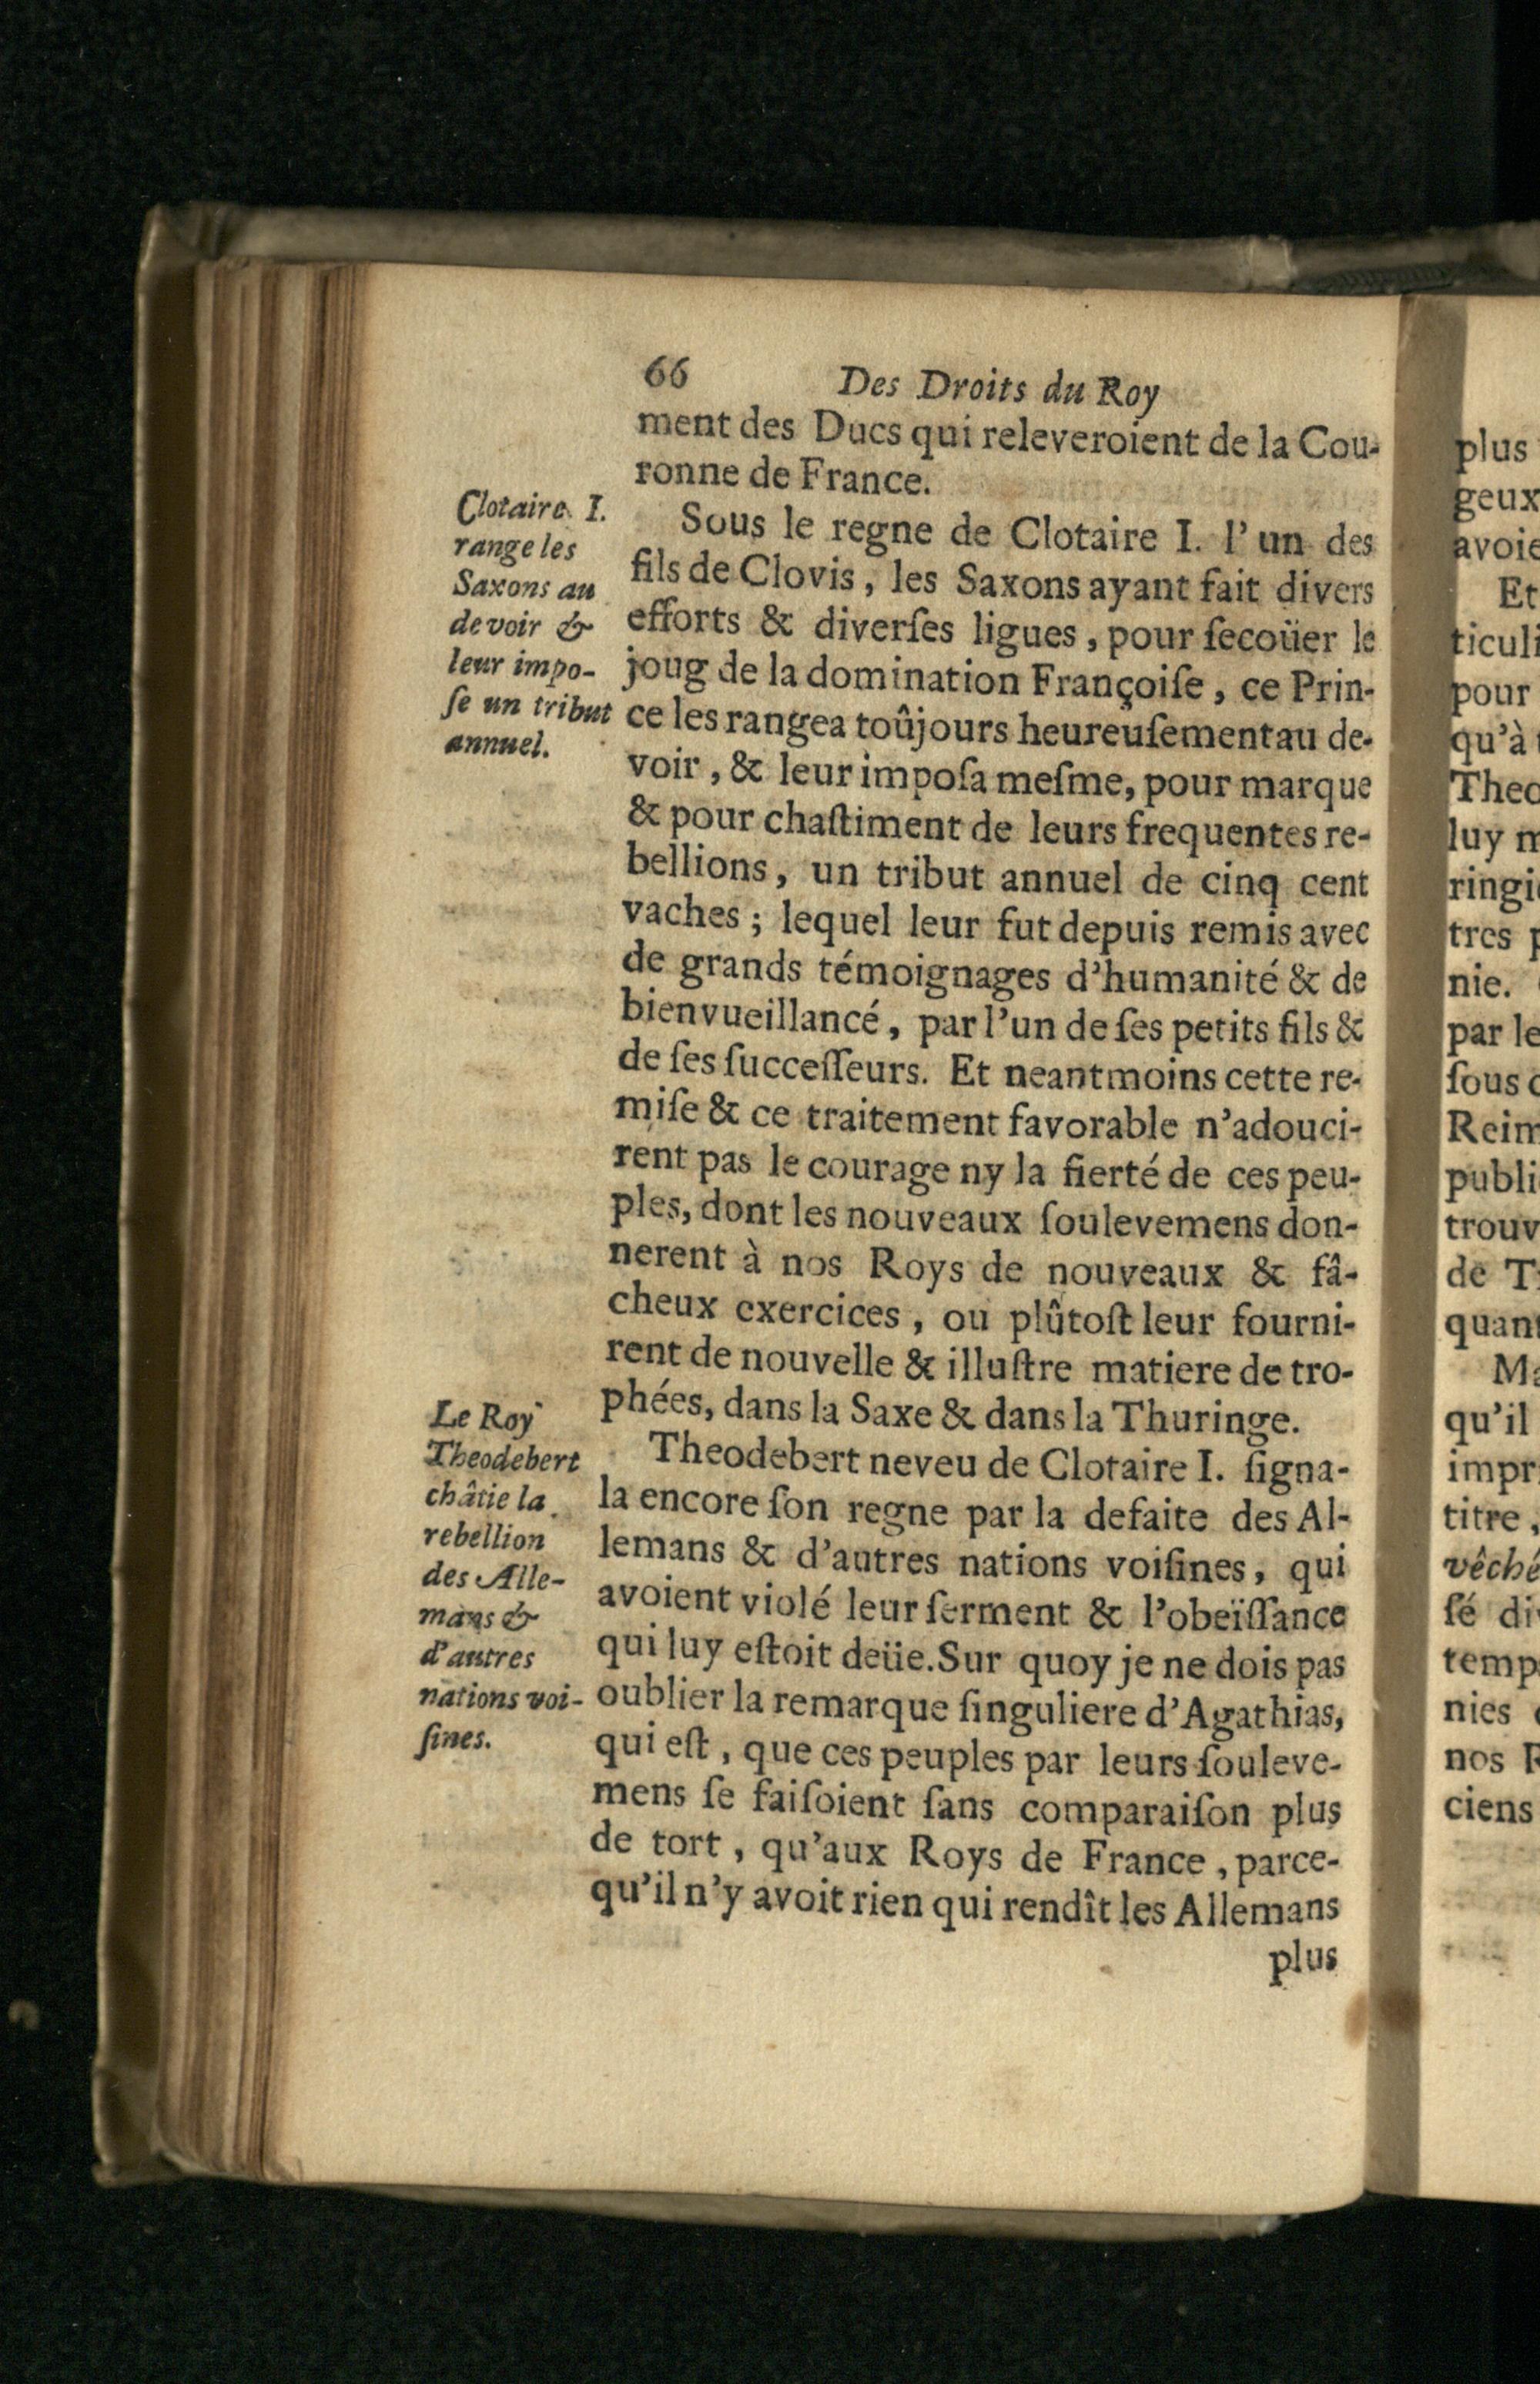 66 Des Droits du Roy
ment des Ducs qui releveroient de la Cou-
ronne de France.
Clotaire I.
range les
Saxons au
devoir &
leur impo-
ſe un tribut
annuel.
Sous le regne de Clotaire I. l'un des
fils de Clovis, les Saxons ayant fait divers
efforts & diverſes ligues, pour ſecoüer le
joug de la domination Françoiſe, ce Prin-
ce les rangea toûjours heureuſement au de-
voir, & leur impoſa meſme, pour marque
& pour chaſtiment de leurs frequentes re-
bellions, un tribut annuel de cinq cent
vaches; lequel leur fut depuis remis avec
de grands témoignages d'humanité & de
bienvueillancé, par l'un de ſes petits fils &
de ſes ſucceſſeurs. Et neantmoins cette re-
miſe & ce traitement favorable n'adouci-
rent pas le courage ny la fierté de ces peu-
ples, dont les nouveaux ſoulevemens don-
nerent à nos Roys de nouveaux & fâ-
cheux exercices, ou plûtoſt leur fourni-
rent de nouvelle & illuſtre matiere de tro-
phées, dans la Saxe & dans la Thuringe.
Le Roy
Theodebert
châtie la
rebellion
des Alle-
mans &
d'autres
nations voi-
ſines.
Theodebert neveu de Clotaire I. ſigna-
la encore ſon regne par la defaite des Al-
lemans & d'autres nations voiſines, qui
avoient violé leur ſerment & l'obeïſſance
qui luy eſtoit deüe. Sur quoy je ne dois pas
oublier la remarque ſinguliere d'Agathias,
qui eſt, que ces peuples par leurs ſouleve-
mens ſe faiſoient ſans comparaiſon plus
de tort, qu'aux Roys de France, parce-
qu'il n'y avoit rien qui rendît les Allemans
plus
plus
geux
avoie
Et
ticuli
pour
qu'à
Theo
luy m
ringi
tres p
nie.
par le
ſous c
Reim
publi
trouv
de T
quant
Ma
qu'il
impr
titre,
vêché
ſé di
temp
nies
nos R
ciens